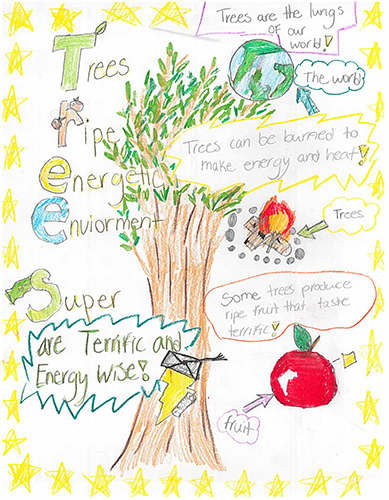 Trees are the lungs
of our
world!
The world
Trees
ripe
energetic
Enviorment
Super
Trees can be burned to
make energy and heat!
Trees
Some trees produce
ripe fruit that taste
terrific!
fruit
are Terrific and
Energy Wise!